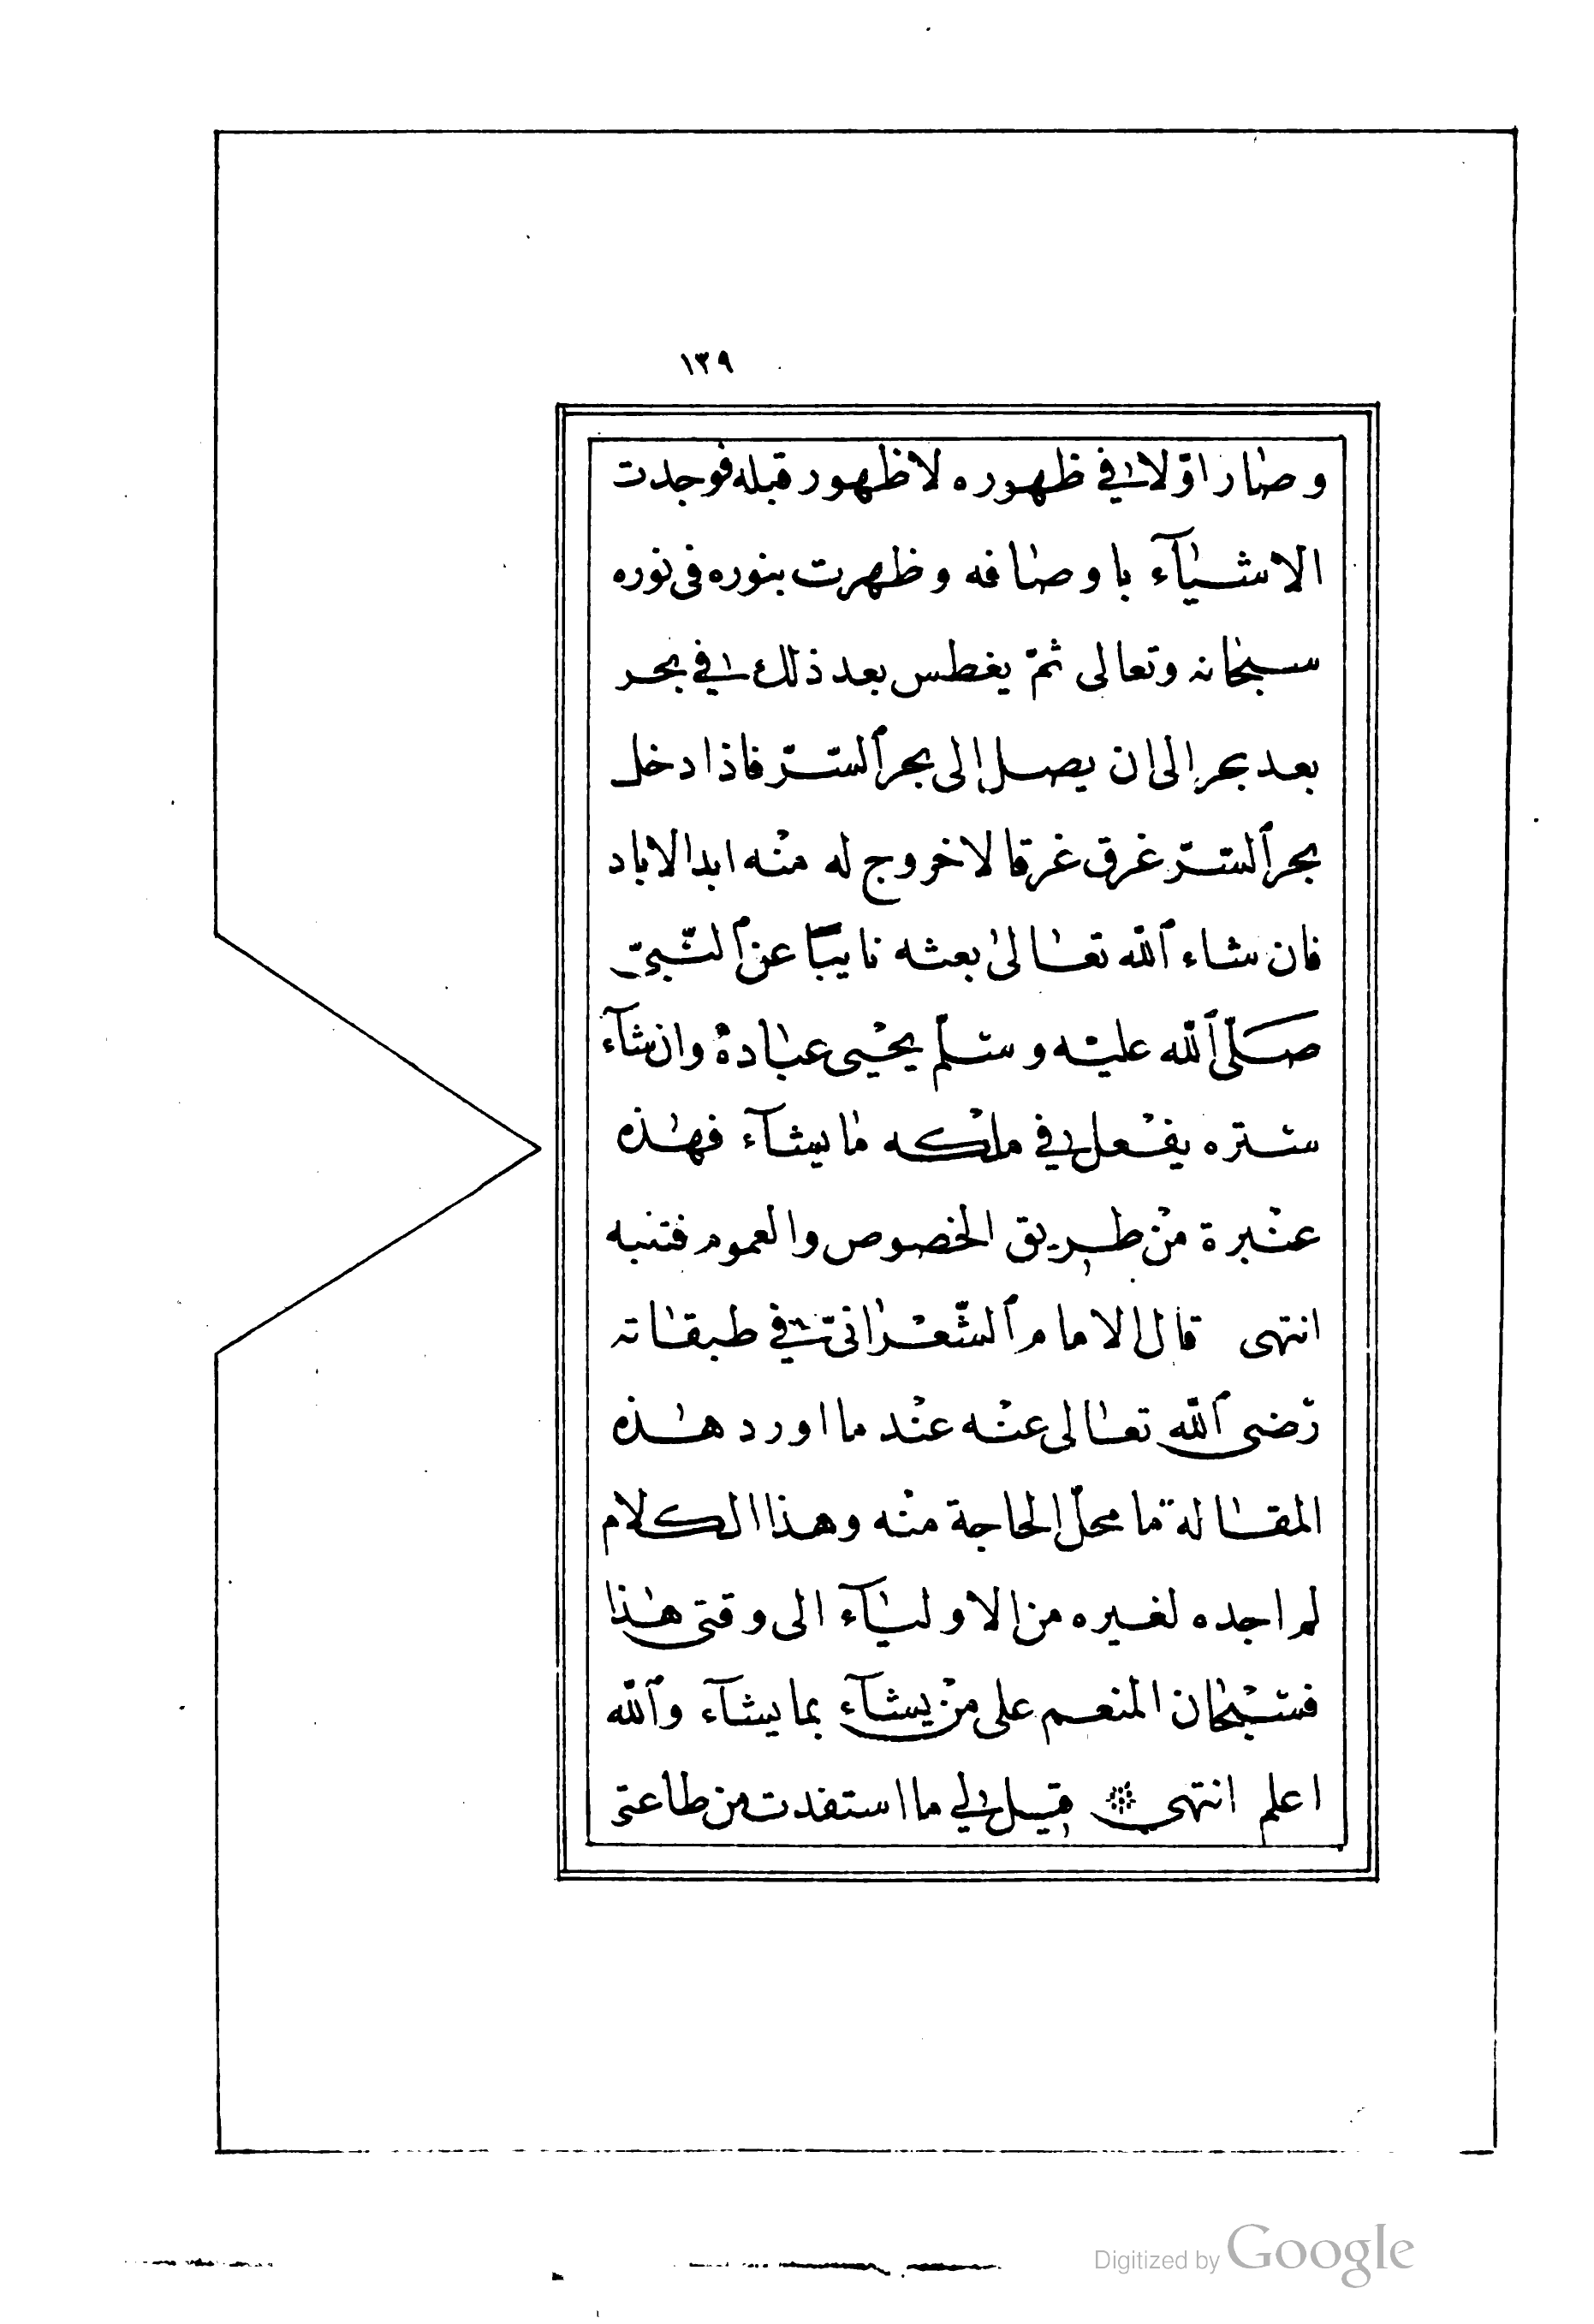 ١٣٩
وصار اوّلا في ظهوره لا ظهور قبله فوجدت
الاشيآء باوصافه وظهرت بنوره فى نوره
سبحانه وتعالى ثمّ يغطس بعد ذلك في بحر
بعد بحر الى ان يصل الى بحر السّرّ فاذا دخل
بحر السّرّ غرق غرقا لا خروج له منْه ابد الاباد
فان شاء الله تعالى بعثه نايبًا عن النّبىّ
صلّى الله عليْه وسلّم يحْيى عباده وان شآء
ستره يفْعل في ملْكه ما يشآء فهذه
عنْبرة منْ طريق الخصوص والعموم فتنبه
انتهى قال الامام الشّعْرانىّ في طبقاته
رضى الله تعالى عنْه عنْد ما اورد هذه
المقالة ما محلّ الحاجة منْه وهذا الكلام
لم اجده لغيره من الاوليآء الى وقتى هذا
فسبْحان المنعم على منْ يشآء بما يشآء والله
اعلم انتهى ۞ قيل لي ما استفدت من طاعتى
Digitized by Google